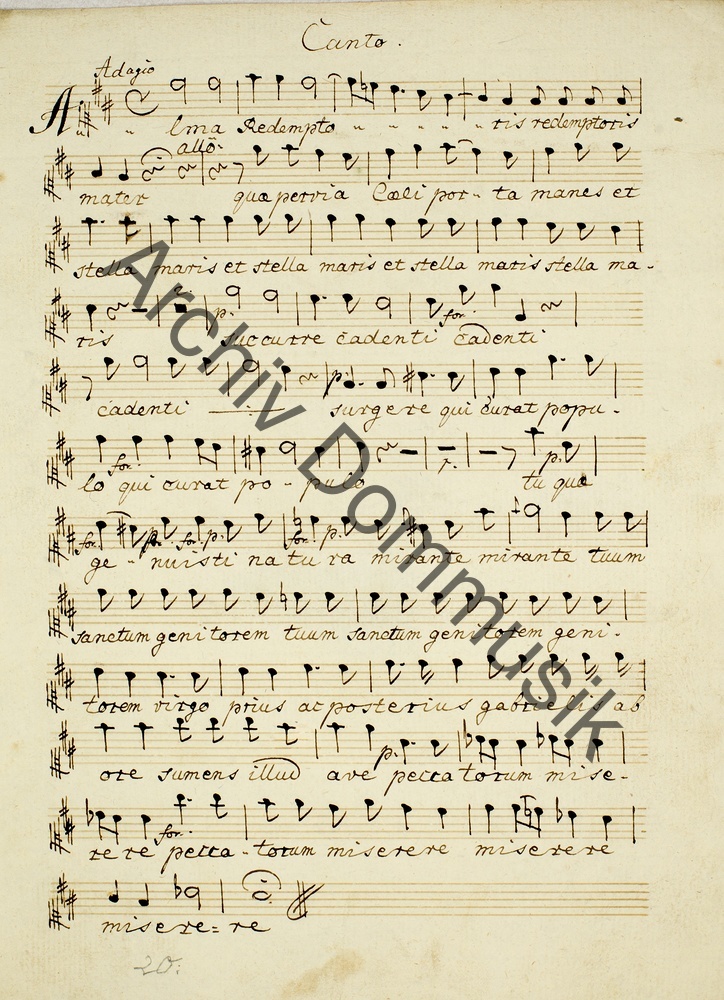 Canto.
Adagio
Alma Redempto - - - - - ris redemptoris
allo:
mater quæ pervia Cæli por - ta manes et
stella maris et stella maris et stella maris stella ma -
p.
for.
ris succurre cadenti cadenti
p.
cadenti surgere qui curat popu -
for.
lo qui curat po - pulo tu quæ
for. p. for. p. for. p.
ge - nuisti natura mirante mirante tuum
sanctum genitorem tuum sanctum genitorem geni -
torem virgo prius ac posterius gabrielis ab
p.
ore sumens illud ave peccatorum mise -
for.
rere pecca - torum miserere miserere
misere = re
20:
Archiv Dommusik